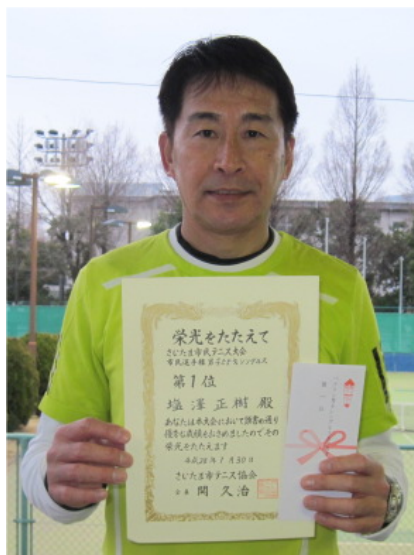 栄光をたたえて
さいたま市民テニス大会
市民選手権 男子
シングルス
第1位
塩澤 正樹 殿
あなたは本大会において頭書の通り
優秀な成績をおさめましたのでその
栄光をたたえます
平成28年1月30日
さいたま市テニス協会
会長 関 久治